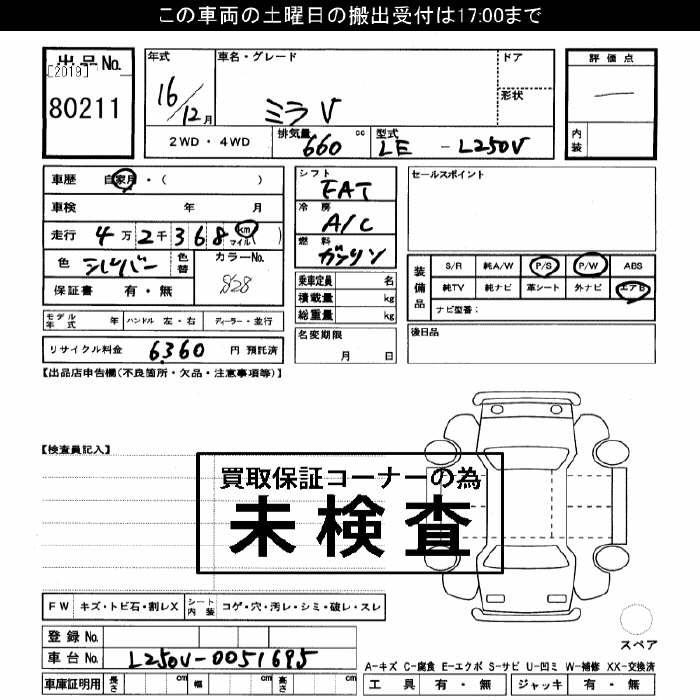 この車両の土曜日の搬出受付は17:00まで
出品No.
[2019]
80211
年式
16/12月
車名・グレード
ミラ V
ドア
形状
評価点
内装
2WD・4WD
排気量 660 cc
型式 LE - L250V
車歴 自家用・( )
車検 年 月
走行 4万2千368 km マイル ( )
色 シルバー 色替
カラーNo. S28
保証書 有・無
モデル年式 年 ハンドル 左・右 ディーラー・並行
リサイクル料金 6,360 円 預託済
シフト FAT
冷房 A/C
燃料 ガソリン
乗車定員 名
積載量 kg
総重量 kg
名変期限
月 日
セールスポイント
装備品
S/R 純A/W P/S P/W ABS
純TV 純ナビ 革シート 外ナビ エアB
ナビ型番:
後日品
【出品店申告欄(不良箇所・欠品・注意事項等)】
【検査員記入】
買取保証コーナーの為
未検査
FW キズ・トビ石・割レX シート内装 コゲ・穴・汚レ・シミ・破レ・スレ
登録No.
車台No. L250V-0051695
車庫証明用 長さ cm 幅 cm 高さ cm
スペア
A-キズ C-腐食 E-エクボ S-サビ U-凹ミ W-補修 XX-交換済
工具 有・無 ジャッキ 有・無